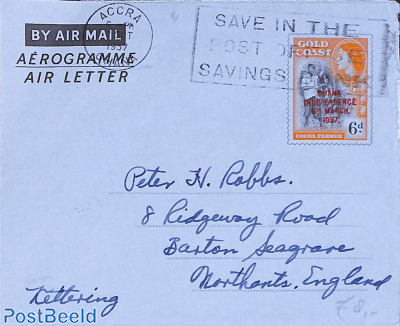 ACCRA
1957
BY AIR MAIL
AÉROGRAMME
AIR LETTER
SAVE IN THE
POST OFFICE
SAVINGS BANK
GOLD
COAST
GHANA
INDEPENDENCE
6TH MARCH,
1957.
6d.
COCOA FARMER
Peter H. Robbs.
8 Ridgeway Road
Barton Seagrave
Northants, England
Lettering
£8,-
PostBeeld